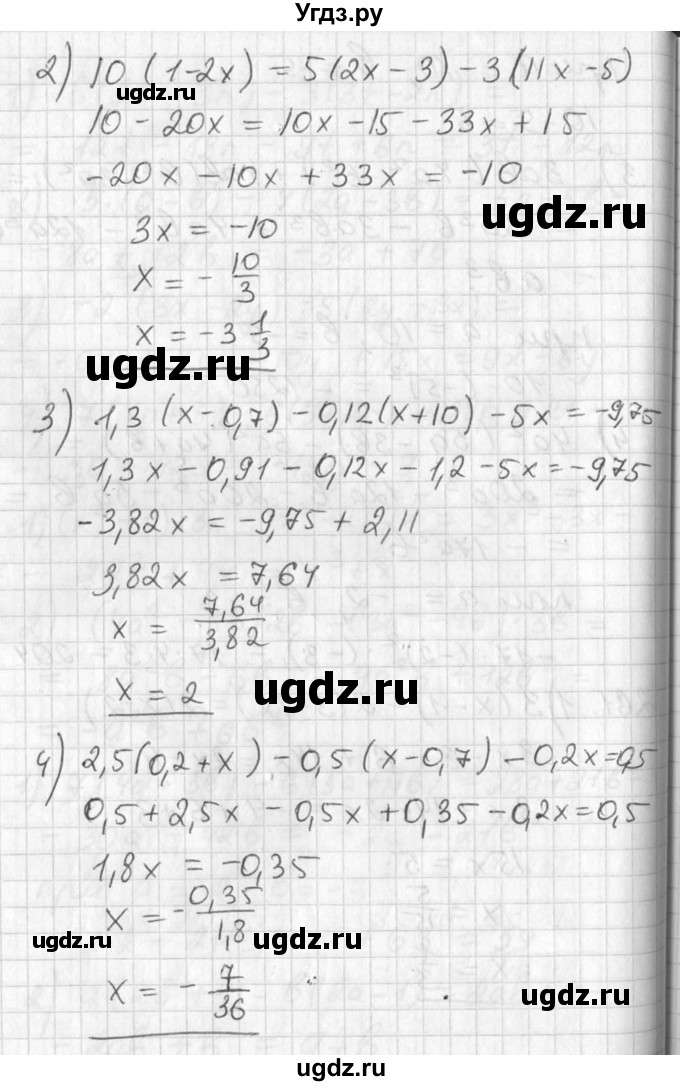 Угдз.ру
2) 10 (1-2x) = 5(2x - 3) - 3(11x - 5)
ugdz.ru
10 - 20x = 10x - 15 - 33x + 15
-20x - 10x + 33x = -10
ugdz.ru
3x = -10
x = - 10/3
x = -3 1/3
ugdz.ru
3) 1,3 (x - 0,7) - 0,12(x+10) - 5x = -9,75
1,3x - 0,91 - 0,12x - 1,2 - 5x = -9,75
-3,82x = -9,75 + 2,11
3,82x = 7,64
x = 7,64/3,82
x = 2
ugdz.ru
4) 2,5(0,2+x) - 0,5(x-0,7) - 0,2x=0,5
0,5 + 2,5x - 0,5x + 0,35 - 0,2x = 0,5
1,8x = -0,35
x = - 0,35/1,8
ugdz.ru
ugdz.ru
x = - 7/36
ugdz.ru
ugdz.ru
ugdz.ru